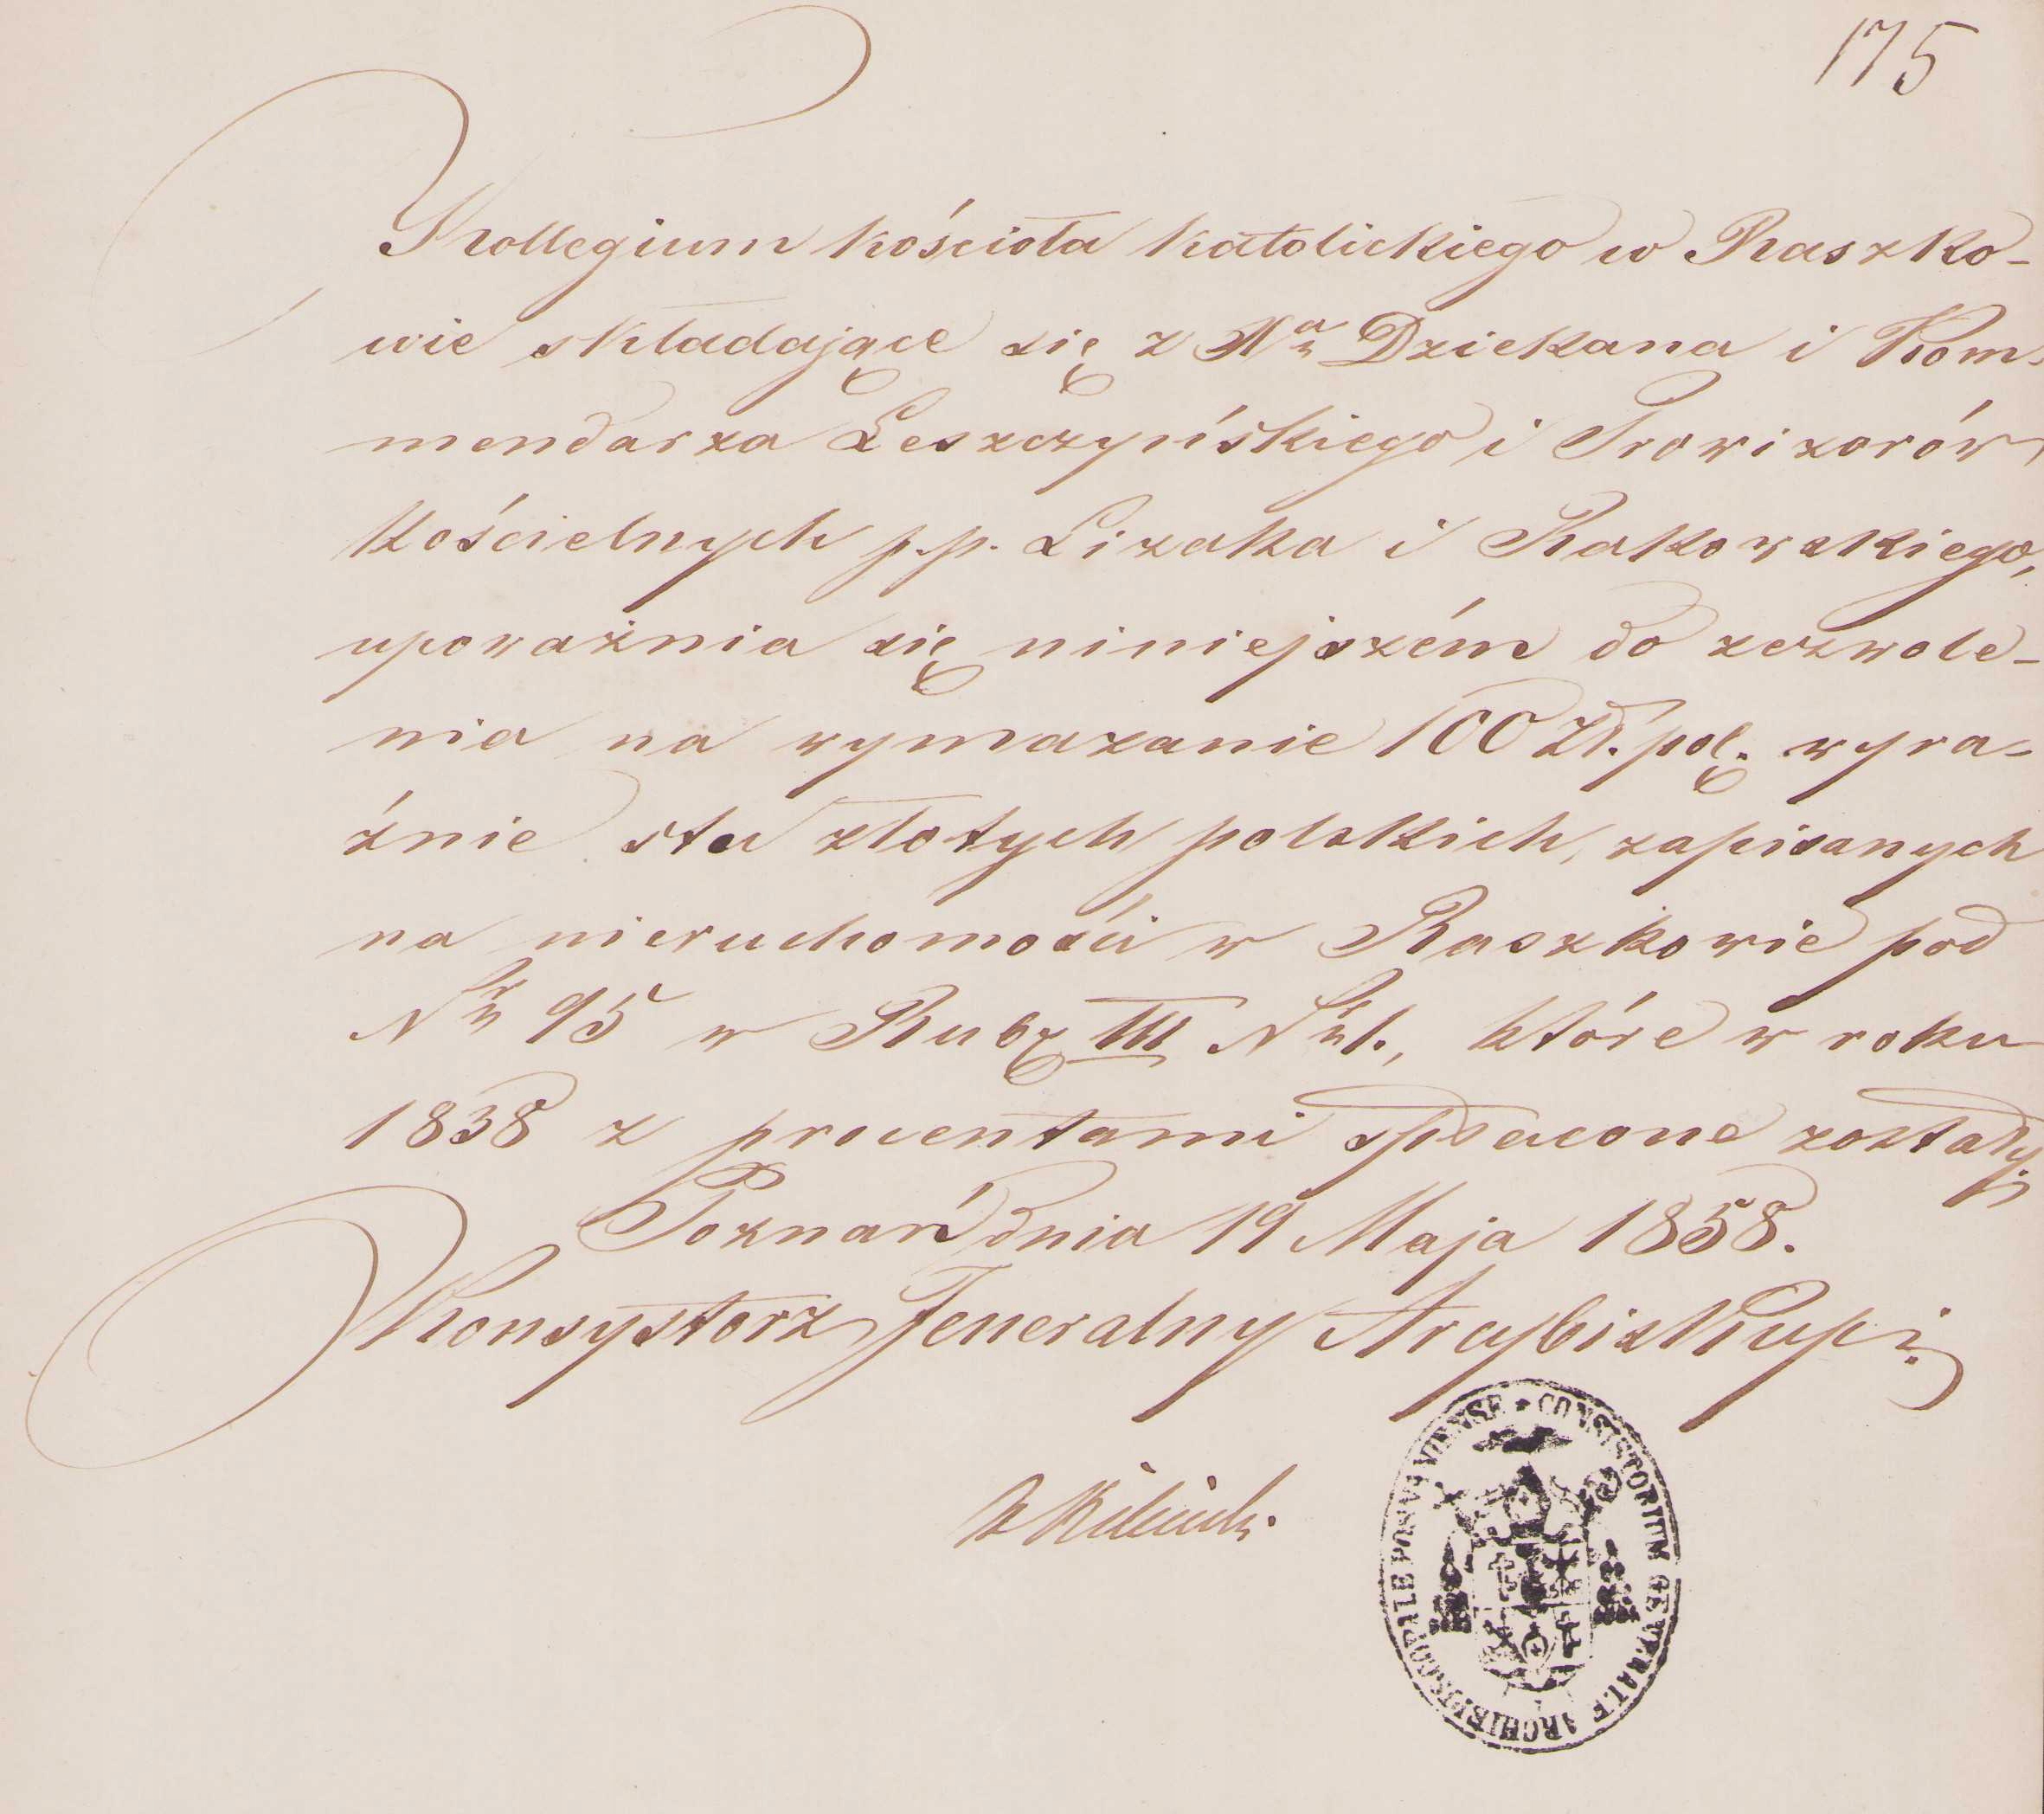 175
Kollegium kościoła katolickiego w Raszko-
wie składające się z Xa Dziekana i Kom-
mendarza Leszczyńskiego i Prowizorów
kościelnych p.p. Lizaka i Rakowskiego,
upoważnia się niniejszém do zezwole-
nia na wymazanie 100 Zł. pol. wyra-
źnie stu złotych polskich, zapisanych
na nieruchomości w Raszkowie pod
Nr 95 w Rubr III Nr 1., które w roku
1838 z procentami spłacone zostały.
Poznań dnia 19 Maja 1858.
Konsystorz Jeneralny Arcybiskupi.
CONSISTORIUM GENERALE ARCHIEPISCOPALE POSNANIENSE